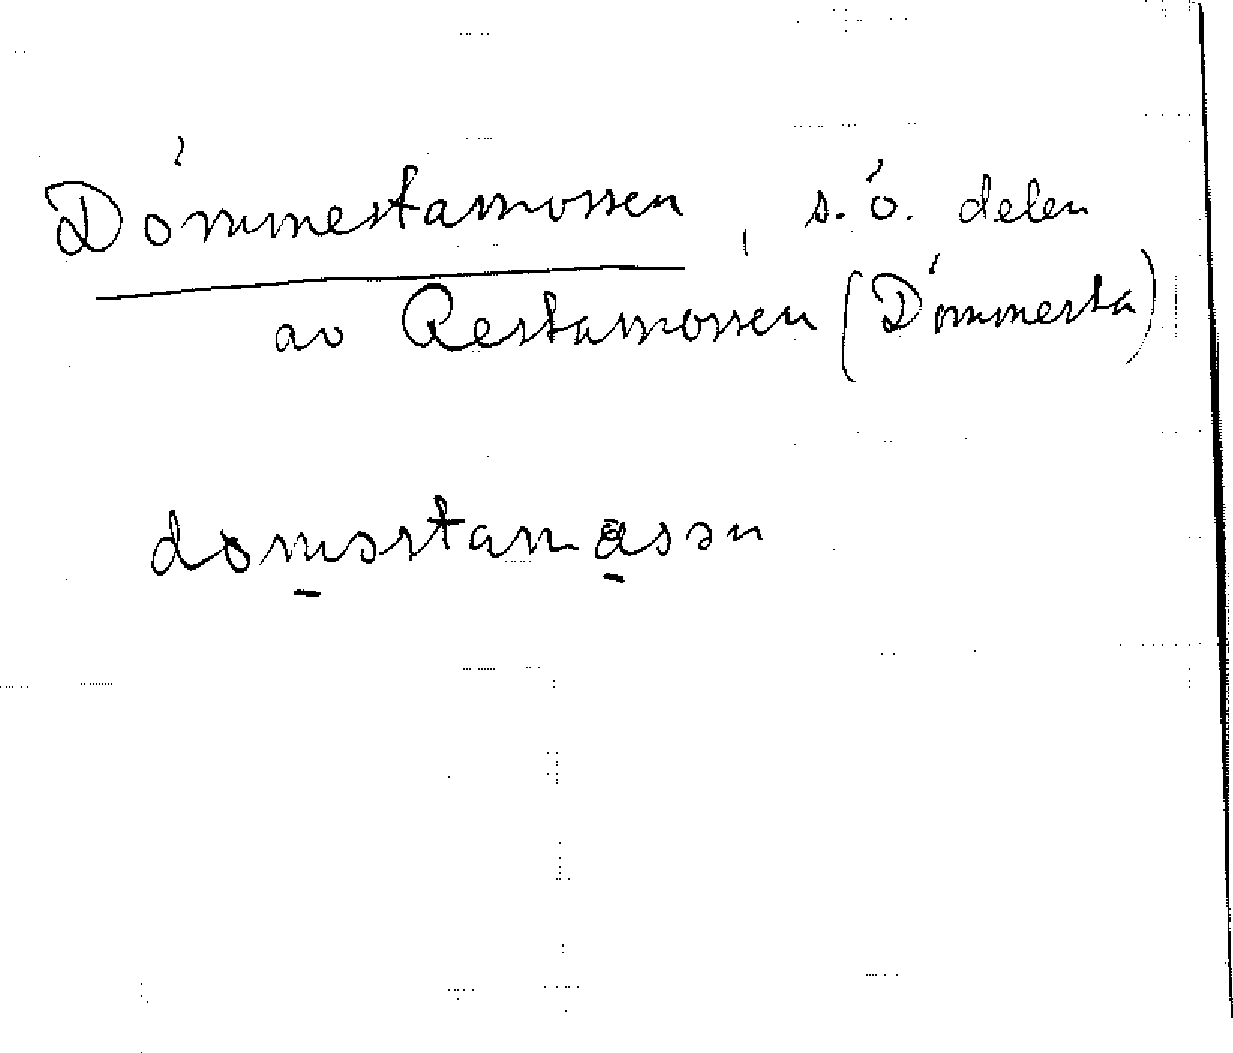 Dömmestamossen, s.ö. delen
av Restamossen (Dömmesta)
doməstamåsən